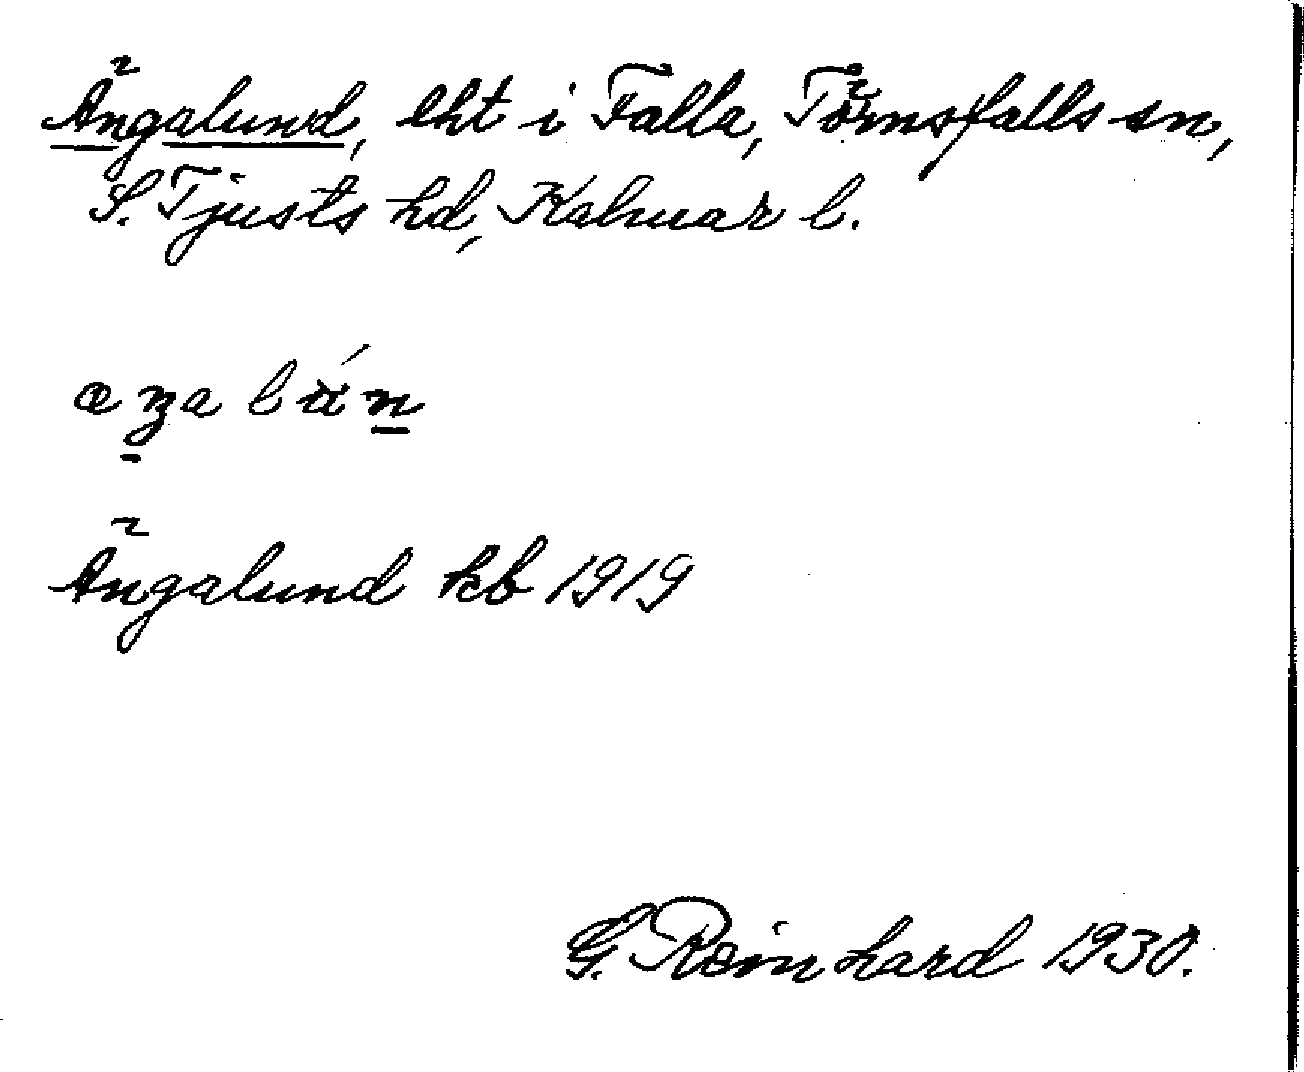 Ängalund, lht i Falla, Törnsfalls sn,
S. Tjusts hd, Kalmar l.
Ängalund kb 1919
G. Reinhard 1930.